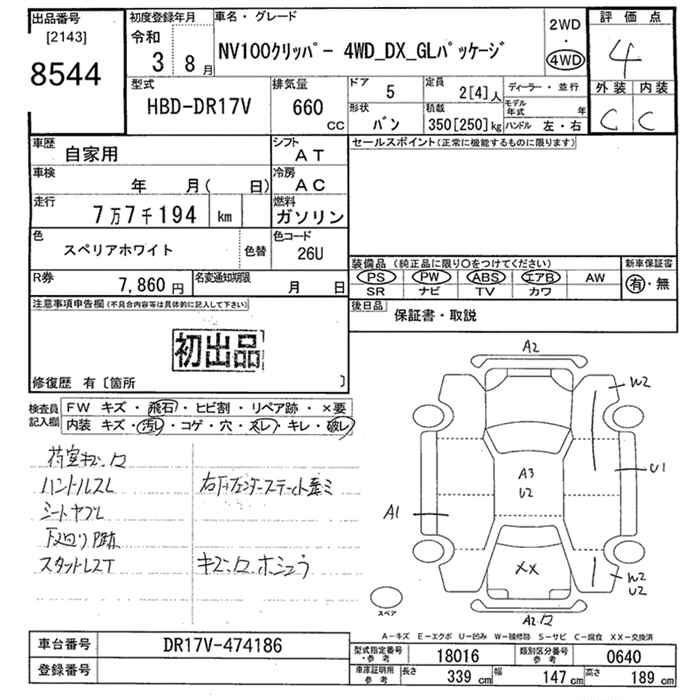 出品番号
[2143]
8544
初度登録年月
令和
3 8月
車名・グレード
NV100クリッパー 4WD_DX_GLパッケージ
2WD
・
4WD
評価点
4
外装 内装
C C
型式
HBD-DR17V
排気量
660
CC
ドア
5
定員
2[4]人
ディーラー・並行
形状
バン
積載
350[250]kg
モデル年式 年
ハンドル 左・右
車歴
自家用
シフト
AT
セールスポイント(正常に機能するものに限ります)
車検
年 月( 日)
冷房
AC
走行
7万7千194 km
燃料
ガソリン
色
スペリアホワイト
色替
色コード
26U
装備品(純正品に限り○をつけてください)
新車保証書
PS PW ABS エアB AW
有・無
SR ナビ TV カワ
R券
7,860円
名変通知期限
月 日
後日品
保証書・取説
注意事項申告欄(不具合内容等は具体的に記入して下さい)
初出品
修復歴 有〔箇所 〕
検査員記入欄
FW キズ・飛石・ヒビ割・リペア跡・×要
内装 キズ・汚レ・コゲ・穴・スレ・キレ・破レ
ハンドルスレ
シートヤブレ
A2
W2
U1
A3
U2
A1
XX
W2
U2
スペア
A-キズ E-エクボ U-凹み W-補修跡 S-サビ C-腐食 XX-交換済
車台番号
DR17V-474186
登録番号
型式指定番号・参考
18016
類別区分番号・参考
0640
車庫証明用・参考
長さ 339 cm
幅 147 cm
高さ 189 cm